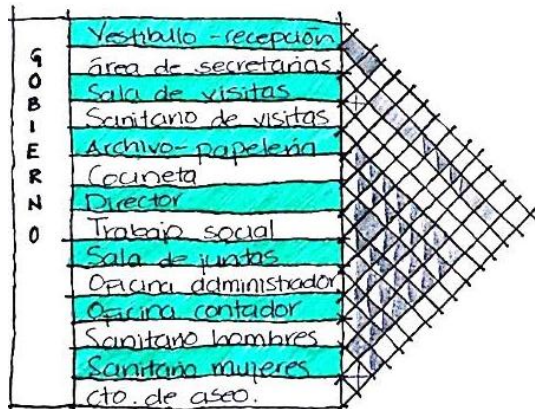 GOBIERNO
Vestíbulo - recepción
área de secretarias
Sala de visitas
Sanitario de visitas
Archivo - papelería
Cocineta
Director
Trabajo social
Sala de juntas
Oficina administrador
Oficina contador
Sanitario hombres
Sanitario mujeres
cto. de aseo.